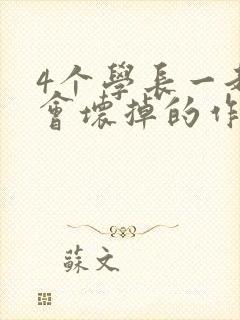 4个學長一
會壞掉的作
蘇文